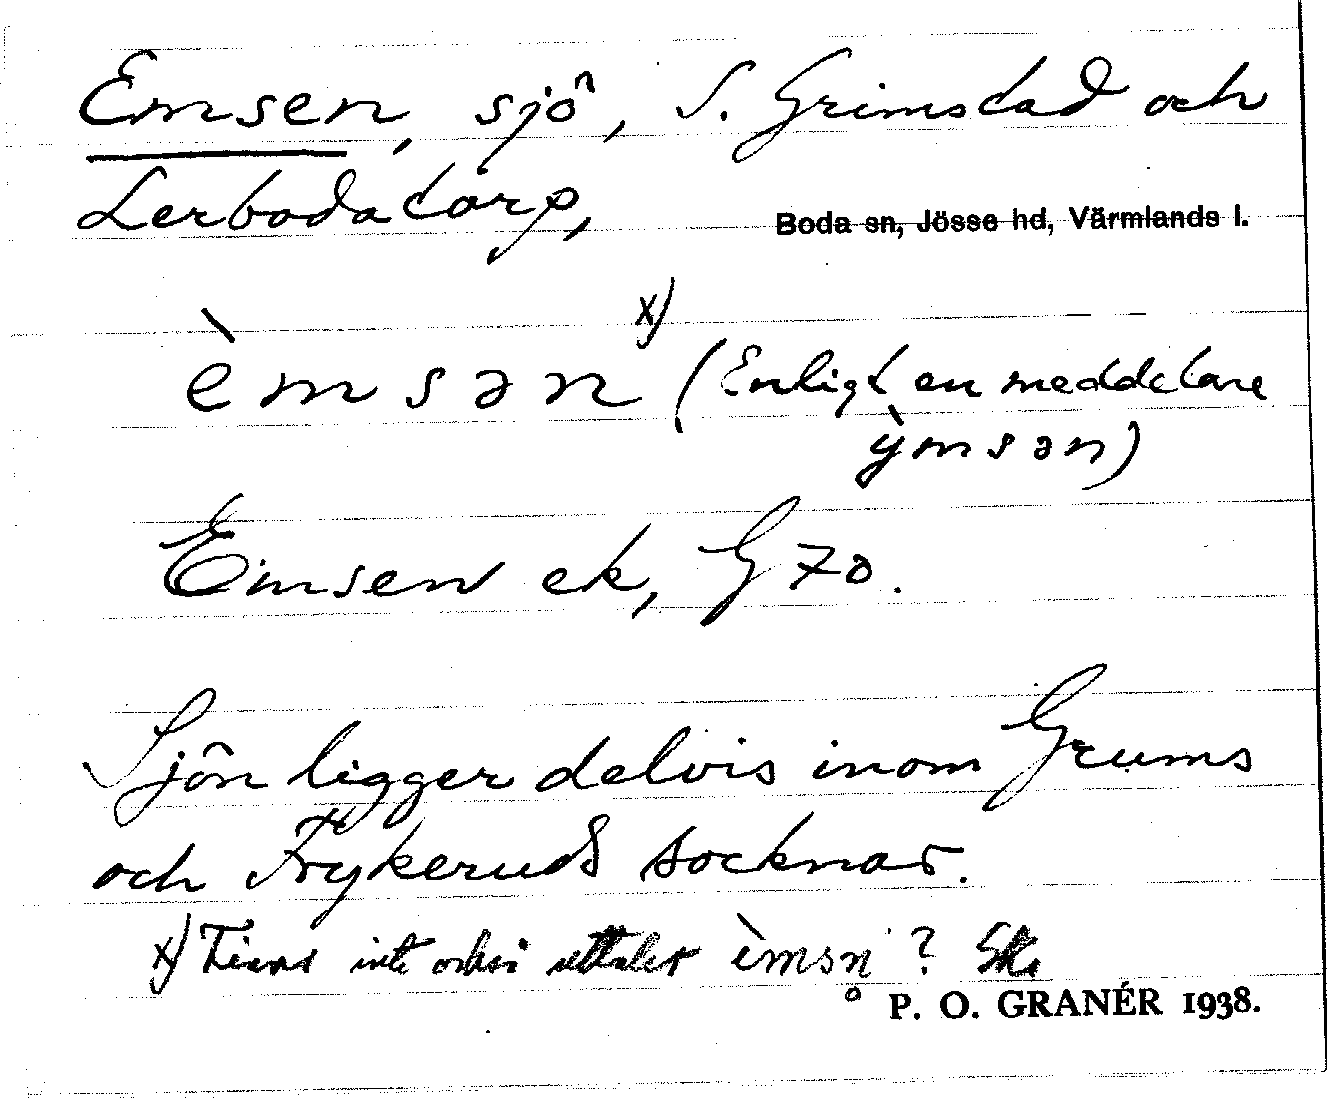 Emsen, sjö, S. Grimstad och
Lerbodatorp,
Boda sn, Jösse hd, Värmlands l.
x)
èmsən (Enligt en meddelare
ỳmsən)
Emsen ek, G 70.
Sjön ligger delvis inom Grums
och Frykeruds socknar.
x) Finns inte också uttalet èmsn? Sks
P. O. GRANÉR 1938.